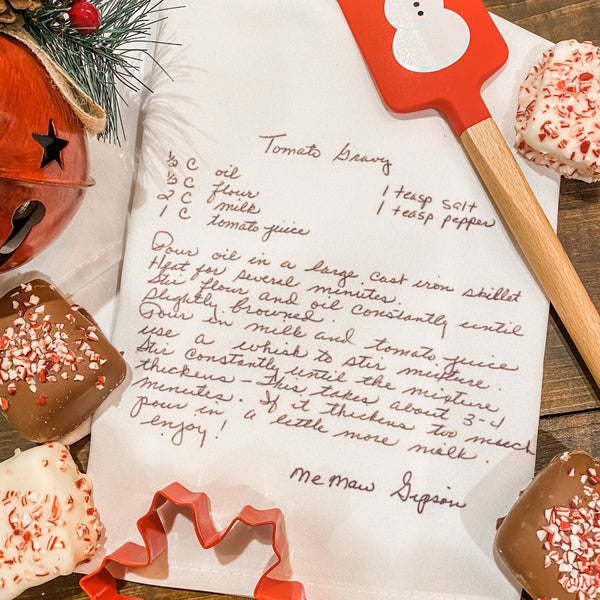 Tomato Gravy
1/2 C oil
1/2 C flour
2 C milk
1 C tomato juice
1 teasp salt
1 teasp pepper
Pour oil in a large cast iron skillet
Heat for severel minutes.
Stir flour and oil constantly until
slightly browned.
Pour in milk and tomato juice
use a whisk to stir mixture.
Stir constantly until the mixture
thickens - This takes about 3-4
minutes. If it thickens too much
pour in a little more milk.
enjoy!
MeMaw Gipson